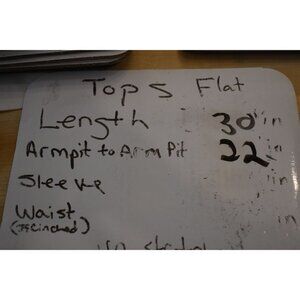 Tops Flat
Length 30 in
Armpit to Arm Pit 22 in
Sleeve in
Waist in
(if Cinched)